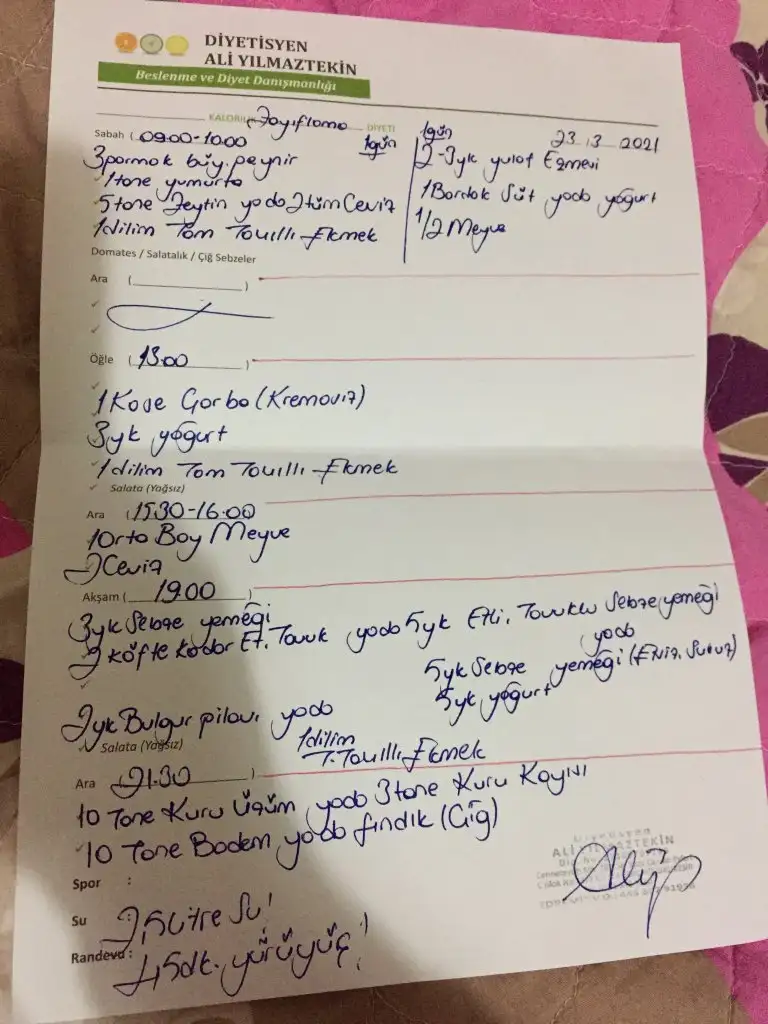 DİYETİSYEN
ALİ YILMAZTEKİN
Beslenme ve Diyet Danışmanlığı
KALORİLİ Zayıflama DİYETİ
23.3.2021
Sabah (09.00-10.00) 1gün
3 parmak büy. peynir
1 tane yumurta
5 tane Zeytin yada 2 tüm Ceviz
1 dilim Tam Tahıllı Ekmek
1gün
2-3yk yulaf Ezmesi
1 Bardak Süt yada yoğurt
1/2 Meyve
Domates / Salatalık / Çiğ Sebzeler
Ara ( )
Öğle (13.00)
1 Kase Çorba (Kremasız)
3yk yoğurt
1 dilim Tam Tahıllı Ekmek
Salata (Yağsız)
Ara (15.30-16.00)
1 Orta Boy Meyve
2 Ceviz
Akşam (19.00)
3yk Sebze yemeği
2 köfte kadar Et, Tavuk yada 5yk Etli, Tavuklu Sebze yemeği
yada
5yk Sebze yemeği (Etsiz, Susuz)
5yk yoğurt
2yk Bulgur pilavı yada
1 dilim
T. Tahıllı Ekmek
Salata (Yağsız)
Ara (21.30)
10 Tane Kuru üzüm yada 3 tane Kuru Kayısı
10 Tane Badem yada fındık (Çiğ)
Spor :
Su : 2,5 Litre Su!
Randevu : 45dk. yürüyüş!
Diyetisyen
ALİ YILMAZTEKİN